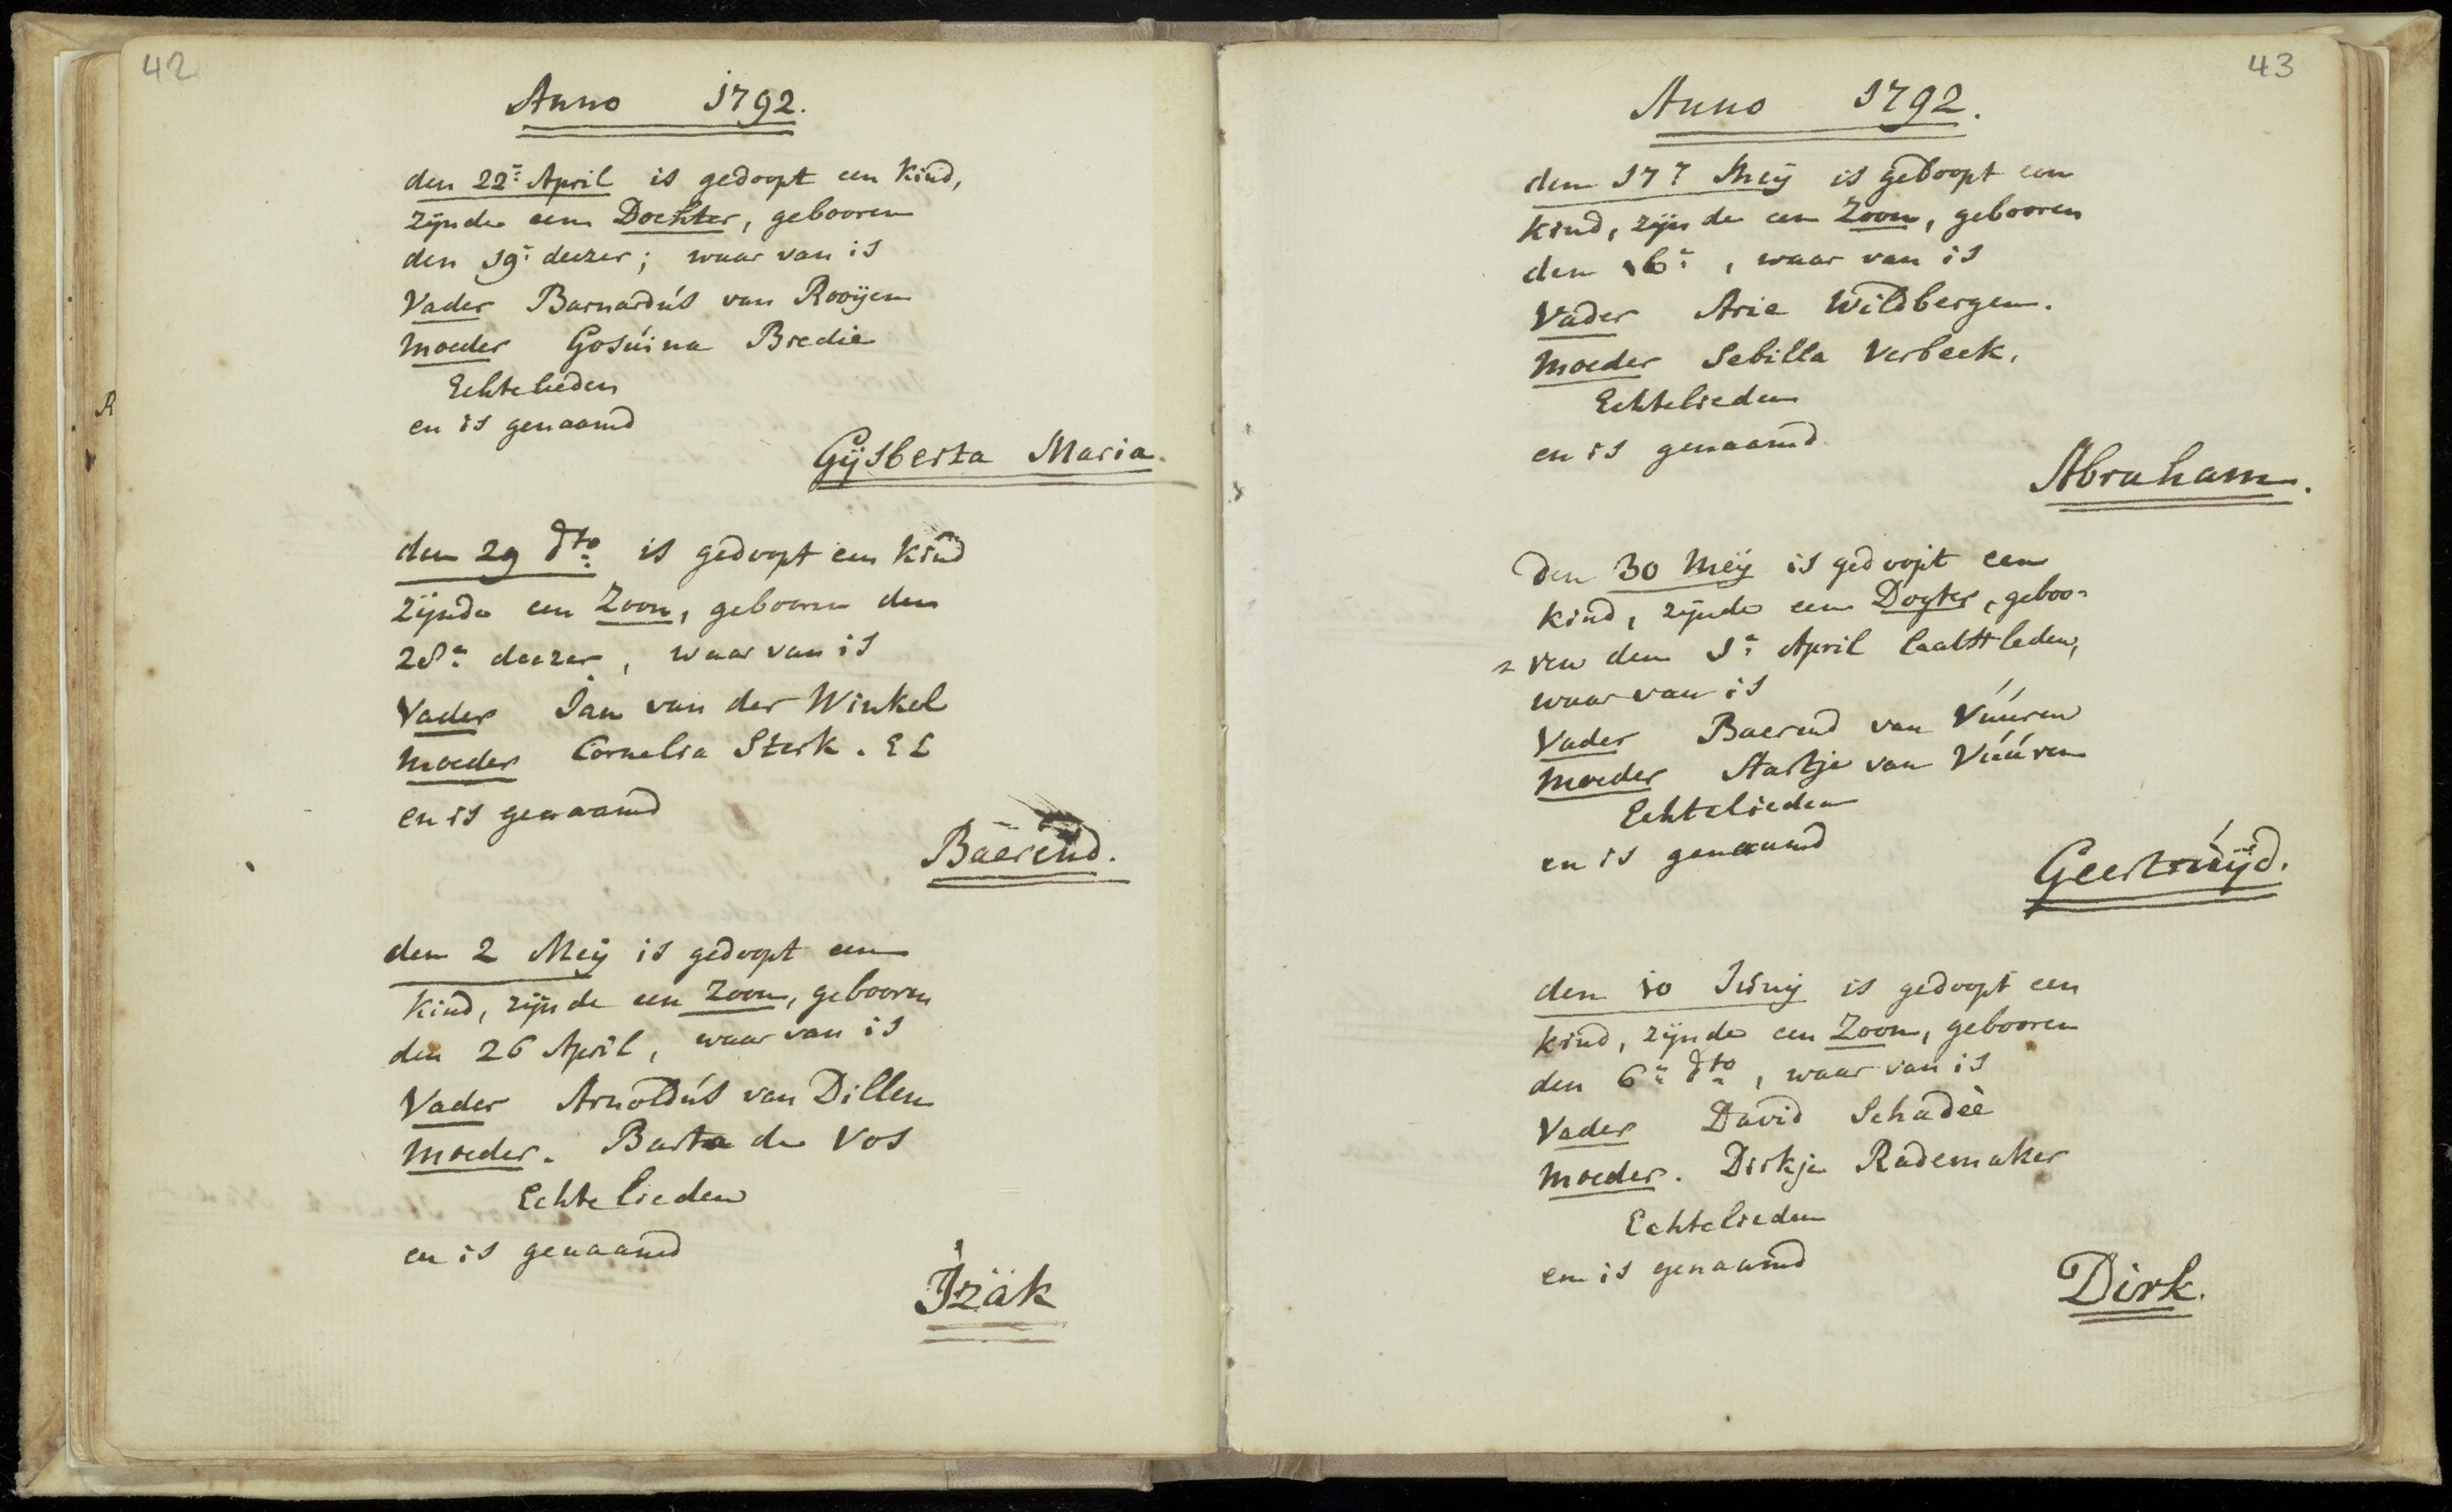 42
Anno 1792.
den 22: April is gedoopt een kind,
zijnde een Dochter, gebooren
den 19: deezer; waar van is
Vader Barnardús van Rooijen
Moeder Gosúina Bredie
Echtelieden
en is genaamd
Gijsberta Maria.
den 29 dto is gedoopt een kind
zijnde een Zoon, gebooren den
28: deezer, waar van is
Vader Jan van der Winkel
Moeder Cornelia Sterk. E L
en is genaamd
Baerend.
den 2 Meij is gedoopt een
kind, zijnde een Zoon, gebooren
den 26 April, waar van is
Vader Arnoldús van Dillen
Moeder. Barta de Vos
Echte lieden
en is genaamd
Izäk
R
43
Anno 1792.
den 17: Meij is gedoopt een
kind, zijnde een Zoon, gebooren
den 16:, waar van is
Vader Arie Wildbergen.
Moeder Sebilla Verbeek,
Echtelieden
en is genaamd
Abraham.
Den 30 Meij is gedoopt een
kind, zijnde een Dogter, geboo-
ren den 1: April laatstleden,
waar van is
Vader Baerend van Vúúren
Moeder Aartje van Vúúren
Echtelieden
en is genaamd
Geertrúijd.
den 10 Júnij is gedoopt een
kind, zijnde een Zoon, gebooren
den 6: dto, waar van is
Vader David Schadèè
Moeder. Dirkje Rademaker
Echtelieden
en is genaamd
Dirk.